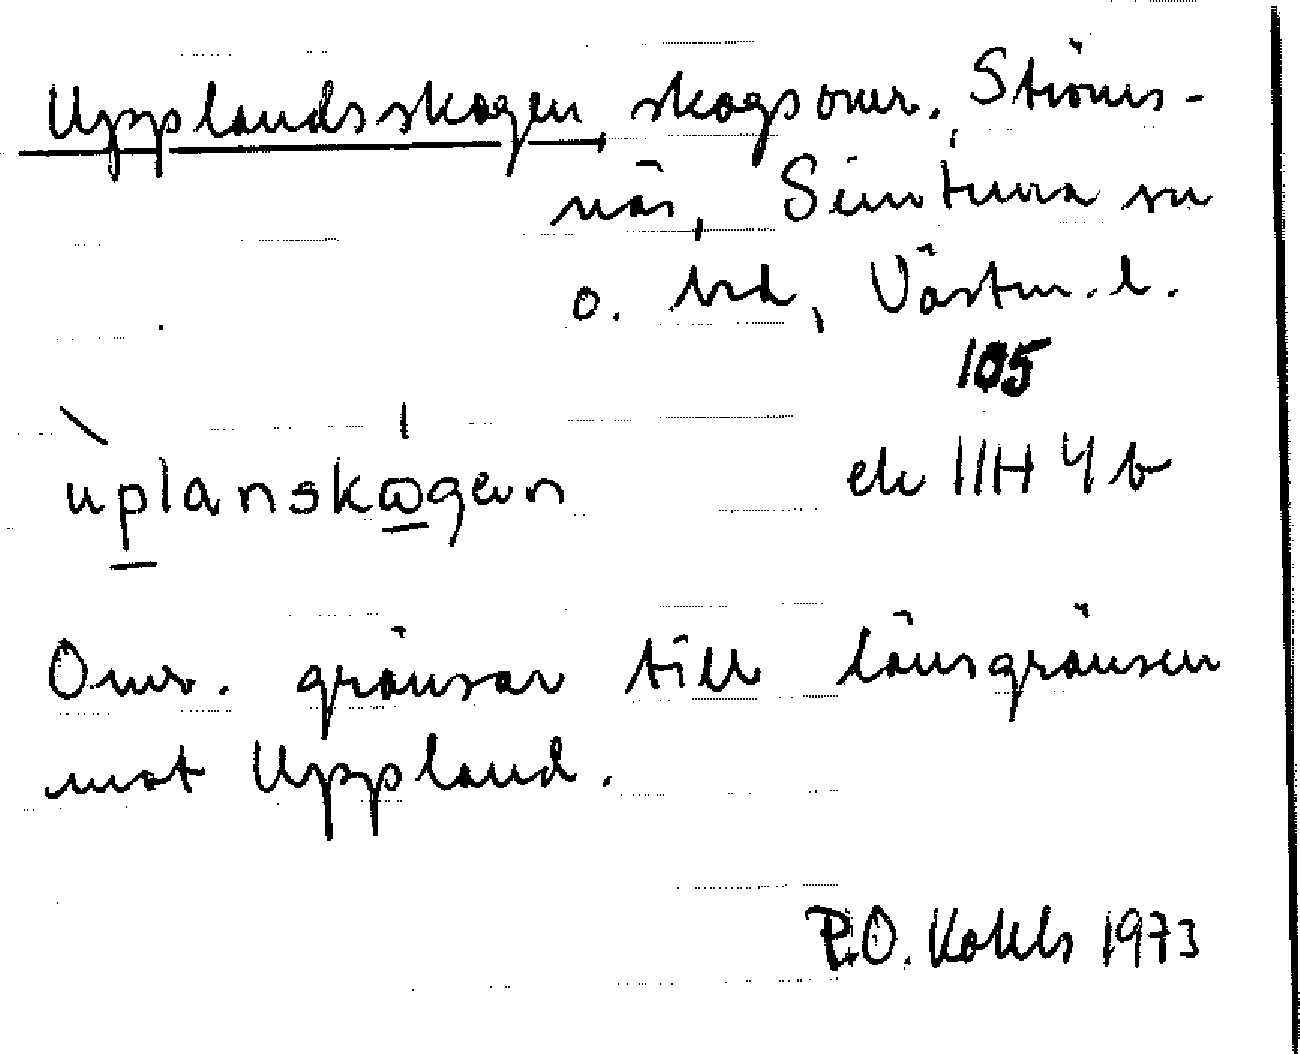 Upplandsskogen, skogsomr. Ströms-
näs, Simtuna sn
o. hd, Västm. l.
105
ek 11H 4b
uplanskωgen
Omr. gränsar till länsgränsen
mot Uppland.
P.O. Kohls 1973